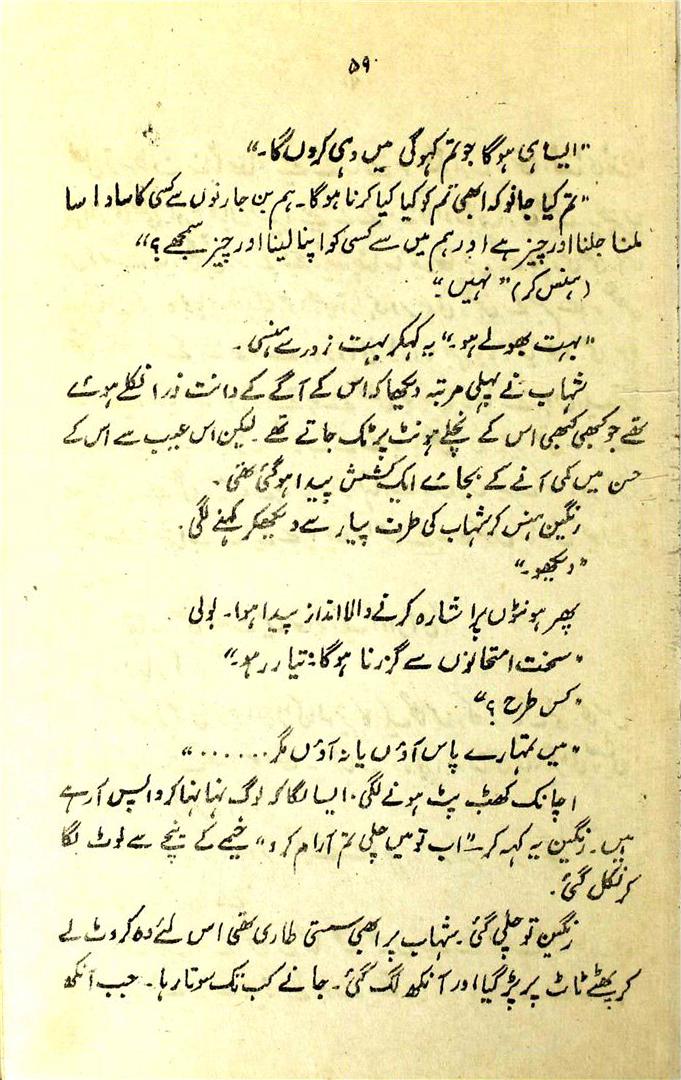 ۵۹
"ایسا ہی ہوگا جو تم کہوگی میں وہی کروں گا۔"
"تم کیا جانو کہ ابھی تم کو کیا کیا کرنا ہوگا۔ ہم بن جارنوں سے کسی کا سادا سا
ملنا جلنا اور چیز ہے اور ہم میں سے کسی کو اپنا لینا اور چیز سمجھے؟"
(ہنس کر) "نہیں۔"
"بہت بھولے ہو۔" یہ کہکر بہت زور سے ہنسی۔
شہاب نے پہلی مرتبہ دیکھا کہ اس کے آگے کے دانت ذرا نکلے ہوئے
تھے جو کبھی کبھی اس کے نچلے ہونٹ پر ٹک جاتے تھے۔ لیکن اس عیب سے اس کے
حسن میں کمی آنے کے بجائے ایک کشش پیدا ہوگئی تھی۔
رنگین ہنس کر شہاب کی طرف پیار سے دیکھکر کہنے لگی۔
"دیکھو۔"
پھر ہونٹوں پر اشارہ کرنے والا انداز پیدا ہوا۔ بولی
"سخت امتحانوں سے گزرنا ہوگا: تیار رہو۔"
"کس طرح؟"
"میں تمہارے پاس آؤں یا نہ آؤں مگر......."
اچانک کھٹ پٹ ہونے لگی۔ ایسا لگا کہ لوگ نہا نہا کر واپس آرہے
ہیں۔ رنگین یہ کہہ کر۔ "اب تو میں چلی تم آرام کرو" خیمے کے نیچے سے لوٹ لگا
کر نکل گئی۔
رنگین تو چلی گئی۔ شہاب پر ابھی سستی طاری تھی اس لئے وہ کروٹ لے
کر پھٹے ٹاٹ پر پڑ گیا اور آنکھ لگ گئی۔ جانے کب تک سوتا رہا۔ جب آنکھ